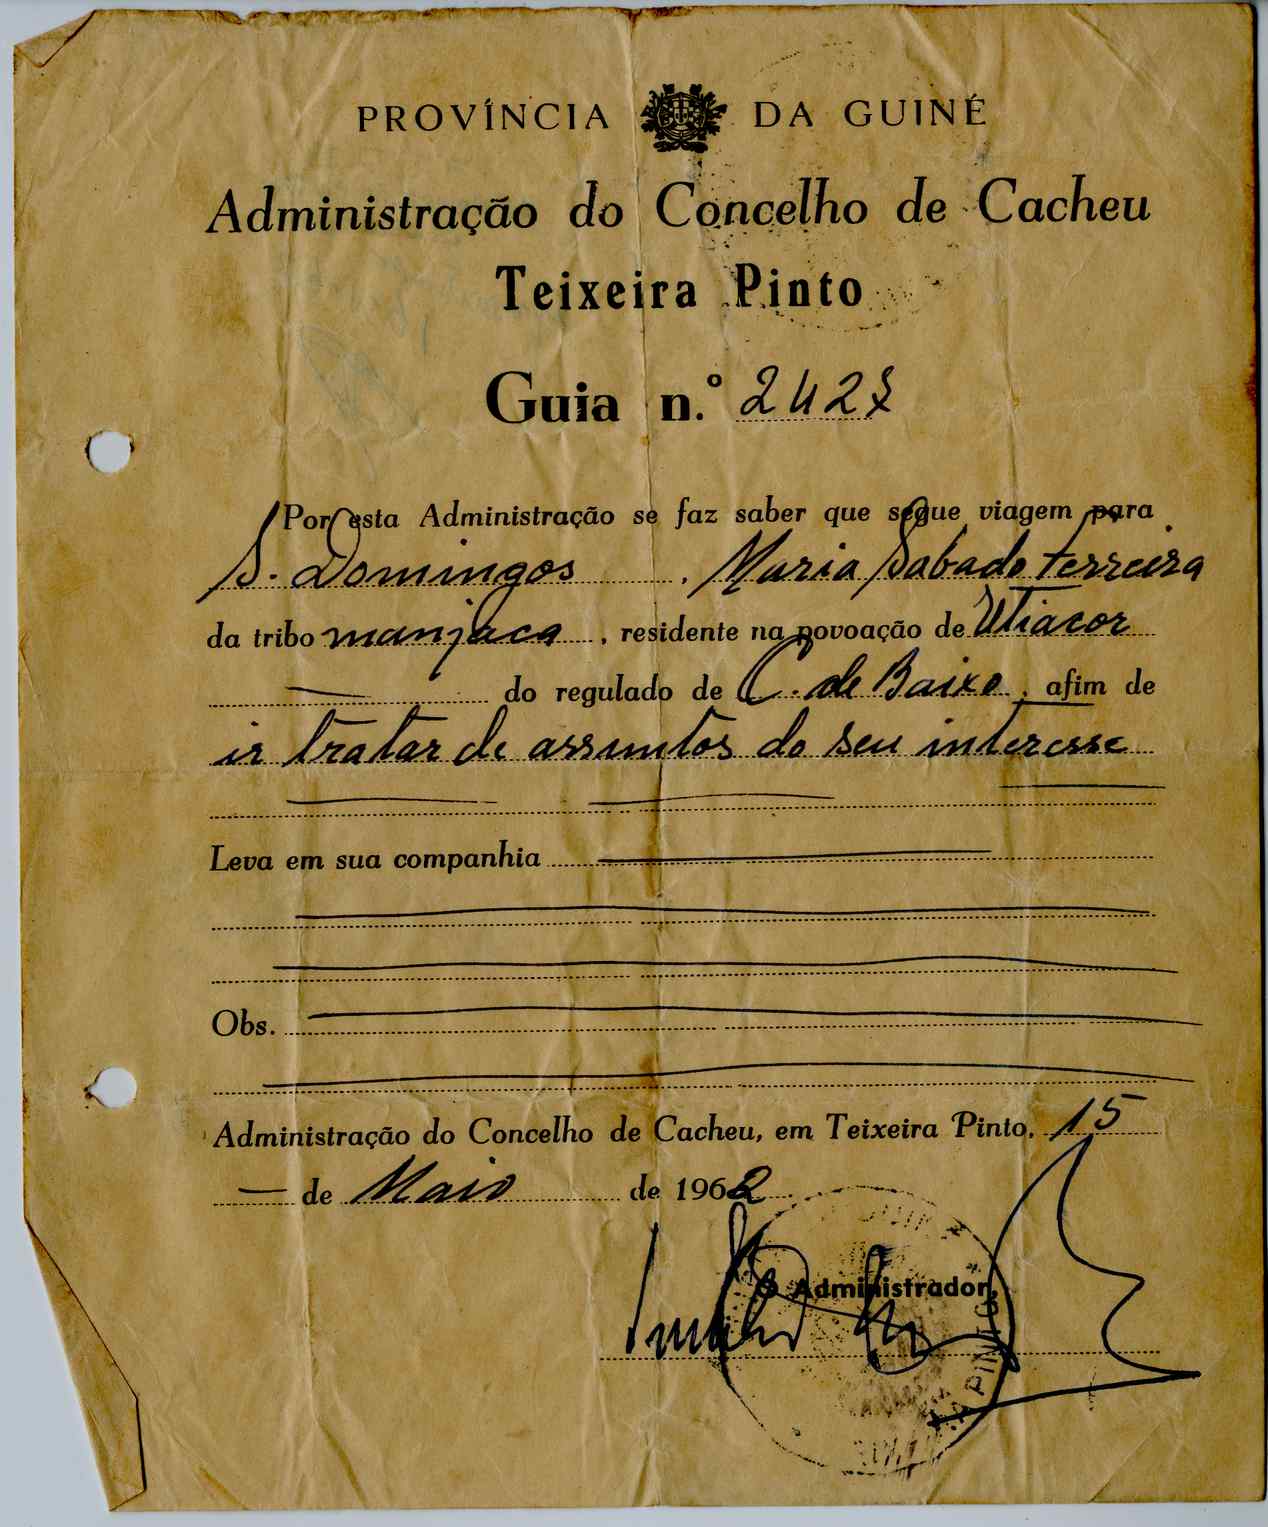 PROVÍNCIA DA GUINÉ
Administração do Concelho de Cacheu
Teixeira Pinto
Guia n.º 2427
Por esta Administração se faz saber que segue viagem para
S. Domingos, Maria Sabado Ferreira
da tribo manjaca, residente na povoação de Utiacor
do regulado de C. de Baixo, afim de
ir tratar de assuntos do seu interesse
Leva em sua companhia
Obs.
Administração do Concelho de Cacheu, em Teixeira Pinto, 15
de Maio de 1962
O Administrador,
PINTO